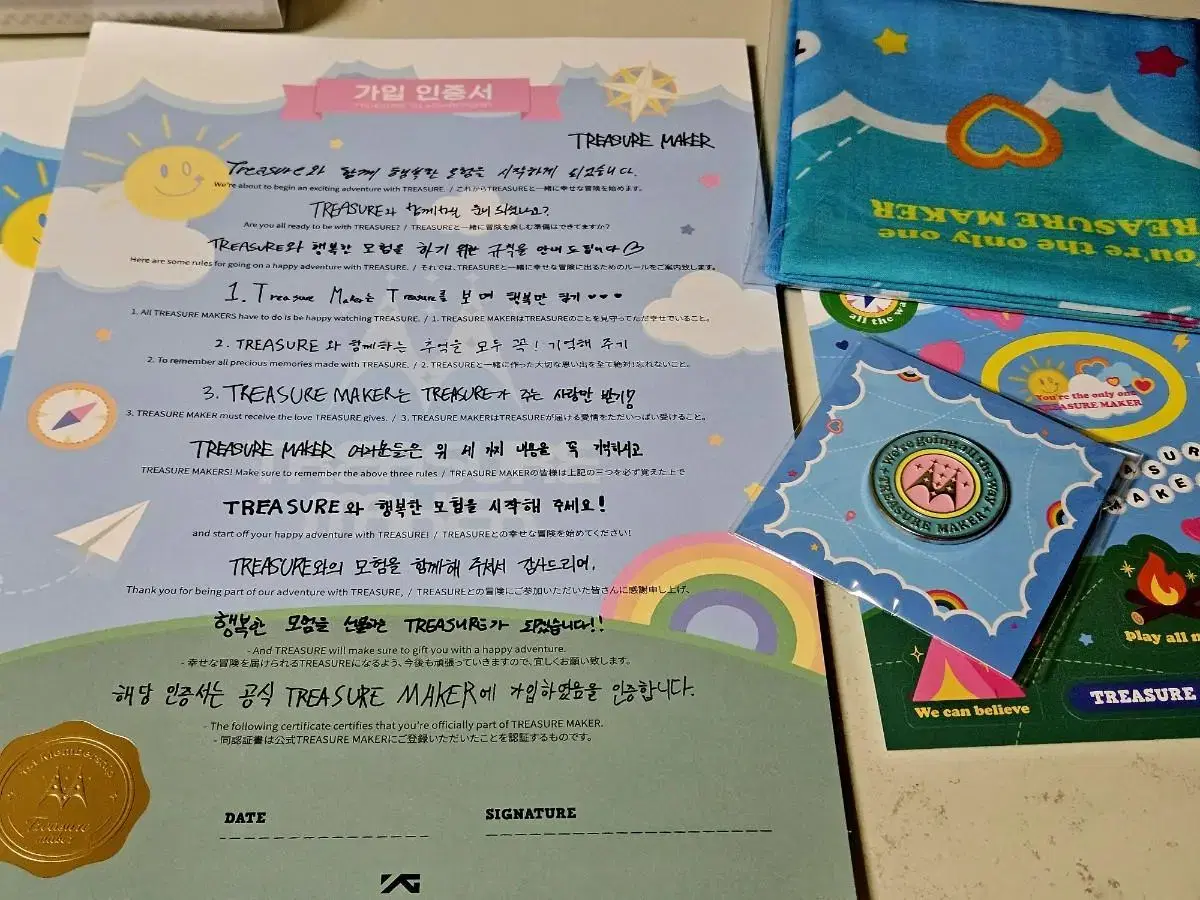 가입 인증서
TREASURE MAKER
Treasure와 함께 행복한 모험을 시작하게 되셨습니다.
We're about to begin an exciting adventure with TREASURE. / これからTREASUREと一緒に幸せな冒険を始めます。
TREASURE와 함께하실 준비 되셨나요?
Are you all ready to be with TREASURE? / TREASUREと一緒に冒険を楽しむ準備はできてますか?
TREASURE와 행복한 모험을 하기 위한 규칙을 안내 드립니다
Here are some rules for going on a happy adventure with TREASURE. / それでは、TREASUREと一緒に幸せな冒険に出るためのルールをご案内致します。
1. Treasure Maker는 Treasure를 보며 행복만 하기 ♥♥♥
1. All TREASURE MAKERS have to do is be happy watching TREASURE. / 1. TREASURE MAKERはTREASUREのことを見守ってただ幸せでいること。
2. TREASURE와 함께하는 추억을 모두 꼭! 기억해 주기
2. To remember all precious memories made with TREASURE. / 2. TREASUREと一緒に作った大切な思い出を全て絶対!忘れないこと。
3. TREASURE MAKER는 TREASURE가 주는 사랑만 받기!!
3. TREASURE MAKER must receive the love TREASURE gives. / 3. TREASURE MAKERはTREASUREが届ける愛情をただいっぱい受けること。
TREASURE MAKER 여러분들은 위 세 가지 내용을 꼭 기억하시고
TREASURE MAKERS! Make sure to remember the above three rules / TREASURE MAKERの皆様は上記の三つを必ず覚えた上で
TREASURE와 행복한 모험을 시작해 주세요!
and start off your happy adventure with TREASURE! / TREASUREとの幸せな冒険を始めてください!
TREASURE와의 모험을 함께해 주셔서 감사드리며,
Thank you for being part of our adventure with TREASURE, / TREASUREとの冒険にご参加いただいた皆さんに感謝申し上げ、
행복한 모험을 선물하는 TREASURE가 되겠습니다!!
- And TREASURE will make sure to gift you with a happy adventure.
- 幸せな冒険を届けられるTREASUREになるよう、今後も頑張っていきますので、宜しくお願い致します。
해당 인증서는 공식 TREASURE MAKER에 가입하였음을 인증합니다.
- The following certificate certifies that you're officially part of TREASURE MAKER.
- 同認証書は公式TREASURE MAKERにご登録いただいたことを認証するものです。
DATE
SIGNATURE
YG
Membership
Treasure
maker
You're the only one
TREASURE MAKER
all the wa
You're the only one
TREASURE MAKER
We're going all the way
TREASURE MAKER
ASUR
MAKE
play all n
We can believe
TREASURE